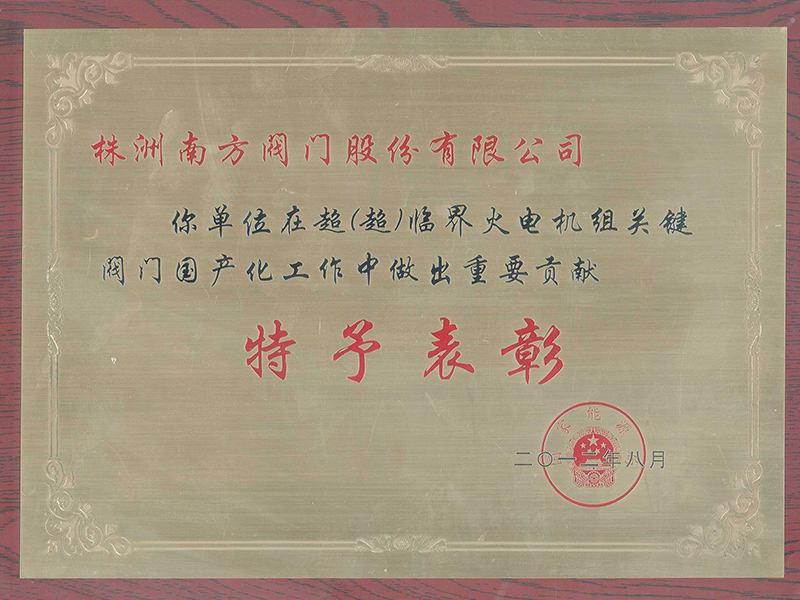 株洲南方阀门股份有限公司
你单位在超(超)临界火电机组关键
阀门国产化工作中做出重要贡献
特予表彰
二〇一二年八月